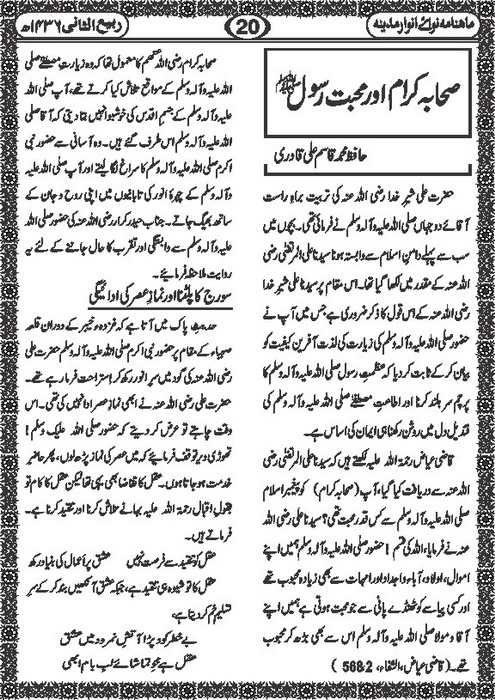 ماہنامہ نوائے انوار مدینہ
20
ربیع الثانی ۱۴۳۶ھ
صحابہ کرام اور محبت رسول ﷺ
حافظ محمد قاسم علی قادری
حضرت علی شیر خدا رضی اللہ عنہ کی تربیت براہ راست
آقائے دو جہاں صلی اللہ علیہ وآلہ وسلم نے فرمائی تھی۔ بچوں میں
سب سے پہلے دامن اسلام سے وابستہ ہونا سیدنا علی المرتضیٰ رضی
اللہ عنہ کے مقدر میں لکھا گیا تھا۔ اس مقام پر سیدنا علی شیر خدا
رضی اللہ عنہ کے اس قول کا ذکر ضروری ہے جس میں آپ نے
حضور صلی اللہ علیہ وآلہ وسلم کی زیارت کی لذت آفرین کیفیت کو
بیان کر کے ثابت کر دیا کہ عظمت رسول صلی اللہ علیہ وآلہ وسلم کا
پرچم سر بلند کرنا اور اطاعت مصطفےٰ صلی اللہ علیہ وآلہ وسلم کی
قندیل دل میں روشن رکھنا ہی ایمان کی اساس ہے۔
قاضی عیاض رحمۃ اللہ علیہ لکھتے ہیں کہ سیدنا علی المرتضیٰ رضی
اللہ عنہ سے دریافت کیا گیا، آپ (صحابہ کرام) کو پیغمبر اسلام
صلی اللہ علیہ وآلہ وسلم سے کس قدر محبت تھی؟ سیدنا علی رضی اللہ
عنہ نے فرمایا، اللہ کی قسم! حضور صلی اللہ علیہ وآلہ وسلم ہمیں اپنے
اموال، اولاد، آباء و اجداد اور امہات سے بھی زیادہ محبوب تھے
اور کسی پیاسے کو ٹھنڈے پانی سے جو محبت ہوتی ہے ہمیں اپنے
آقا و مولا صلی اللہ علیہ وآلہ وسلم اس سے بھی بڑھ کر محبوب
تھے۔ (قاضی عیاض، الشفاء، 568:2)
صحابہ کرام رضی اللہ عنہم کا معمول تھا کہ وہ زیارت مصطفےٰ صلی
اللہ علیہ وآلہ وسلم کے مواقع تلاش کیا کرتے تھے، آپ صلی
اللہ علیہ وآلہ وسلم کے جسم اقدس کی خوشبو انہیں بتا دیتی کہ آقا صلی
اللہ علیہ وآلہ وسلم اس طرف گئے ہیں۔ وہ آسانی سے حضور نبی
اکرم صلی اللہ علیہ وآلہ وسلم کا سراغ لگا لیتے اور آپ صلی اللہ علیہ
وآلہ وسلم کے چہرۂ انور کی تابانیوں میں اپنی روح و جان کے
ساتھ بھیگ جاتے۔ جناب حیدر کرار رضی اللہ عنہ کی حضور صلی اللہ
علیہ وآلہ وسلم سے وابستگی اور تقرب کا حال جاننے کے لئے یہ
روایت ملاحظہ فرمائیے۔
سورج کا پلٹنا اور نماز عصر کی ادائیگی
حدیث پاک میں آتا ہے کہ غزوہ خیبر کے دوران قلعہ
صہباء کے مقام پر حضور نبی اکرم صلی اللہ علیہ وآلہ وسلم حضرت علی
رضی اللہ عنہ کی گود میں سر انور رکھ کر استراحت فرما رہے تھے۔
حضرت علی رضی اللہ عنہ نے ابھی نماز عصر ادا نہیں کی تھی۔ اس
وقت چاہتے تو عرض کر دیتے کہ حضور صلی اللہ علیک وسلم!
تھوڑی دیر توقف فرمائیے کہ میں عصر کی نماز پڑھ لوں، پھر حاضر
خدمت ہو جاتا ہوں۔ عقل کا تقاضا بھی یہی تھا لیکن عقل کا کام تو
بقول اقبال رحمۃ اللہ علیہ بہانے تلاش کرنا اور تنقید کرنا ہے۔
فرماتے ہیں۔
عقل کو تنقید سے فرصت نہیں عشق پر اعمال کی بنیاد رکھ
عقل کا تو شیوہ ہی تنقید ہے، جبکہ عشق آنکھیں بند کر کے سر
تسلیم خم کر دیتا ہے،
بے خطر کود پڑا آتش نمرود میں عشق
عقل ہے محو تماشائے لب بام ابھی